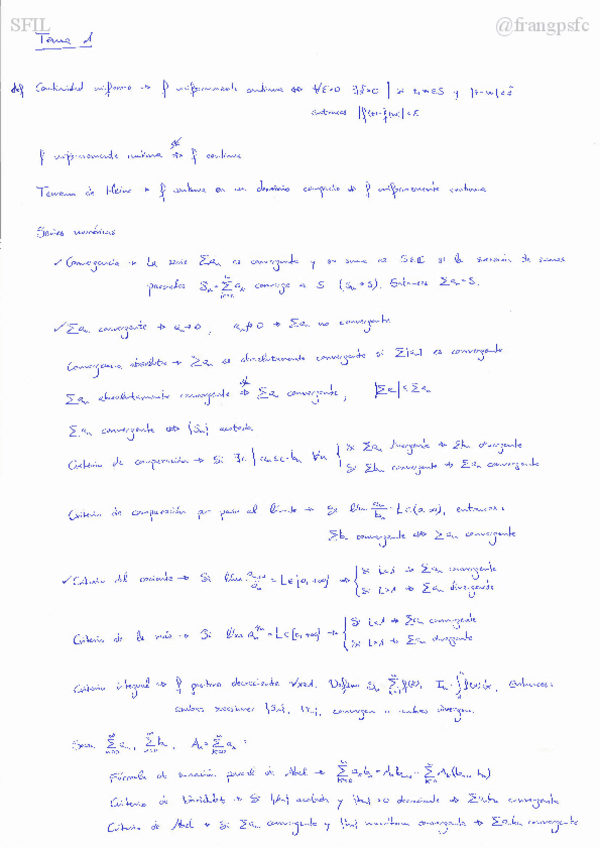 SFIL @frangpsfc
Tema 1
def Continuidad uniforme → f uniformemente continua ⇔ ∀ε>0 ∃δ>0 | si z,w∈S y |z-w|<δ
entonces |f(z)-f(w)|<ε
f uniformemente continua ⇒ f continua
Teorema de Heine → f continua en un dominio compacto ⇒ f uniformemente continua
Series numéricas
✓ Convergencia → La serie Σan es convergente y su suma es S∈ℂ si la sucesión de sumas
parciales Sn = Σ ak converge a S (Sn→S). Entonces Σan=S.
✓ Σan convergente ⇒ an→0, an↛0 ⇒ Σan no convergente
Convergencia absoluta → Σan es absolutamente convergente si Σ|an| es convergente
Σan absolutamente convergente ⇒ Σan convergente,
Σan convergente ⇔ {Sn} acotada.
Criterio de comparación → Si ∃c | an≤c·bn ∀n { Si Σan divergente ⇒ Σbn divergente
Si Σbn convergente ⇒ Σan convergente
Criterio de comparación por paso al límite → Si lím an/bn = L∈(0,∞), entonces:
Σbn convergente ⇔ Σan convergente
✓ Criterio del cociente → Si lím an+1/an = L∈[0,+∞] ⇒ { Si L<1 ⇒ Σan convergente
Si L>1 ⇒ Σan divergente
Criterio de la raíz → Si lím an^1/n = L∈[0,+∞] ⇒ { Si L<1 ⇒ Σan convergente
Si L>1 ⇒ Σan divergente
Criterio integral → f positiva decreciente Entonces:
ambas sucesiones {Sn}, {In}, convergen o ambas divergen.
Sean Σ an, Σ bn, An = Σ ak:
Fórmula de sumación parcial de Abel →
Criterio de Dirichlet → Si {An} acotada y {bn}→0 decreciente ⇒ Σanbn convergente
Criterio de Abel → Si Σan convergente y {bn} monótona convergente ⇒ Σanbn convergente